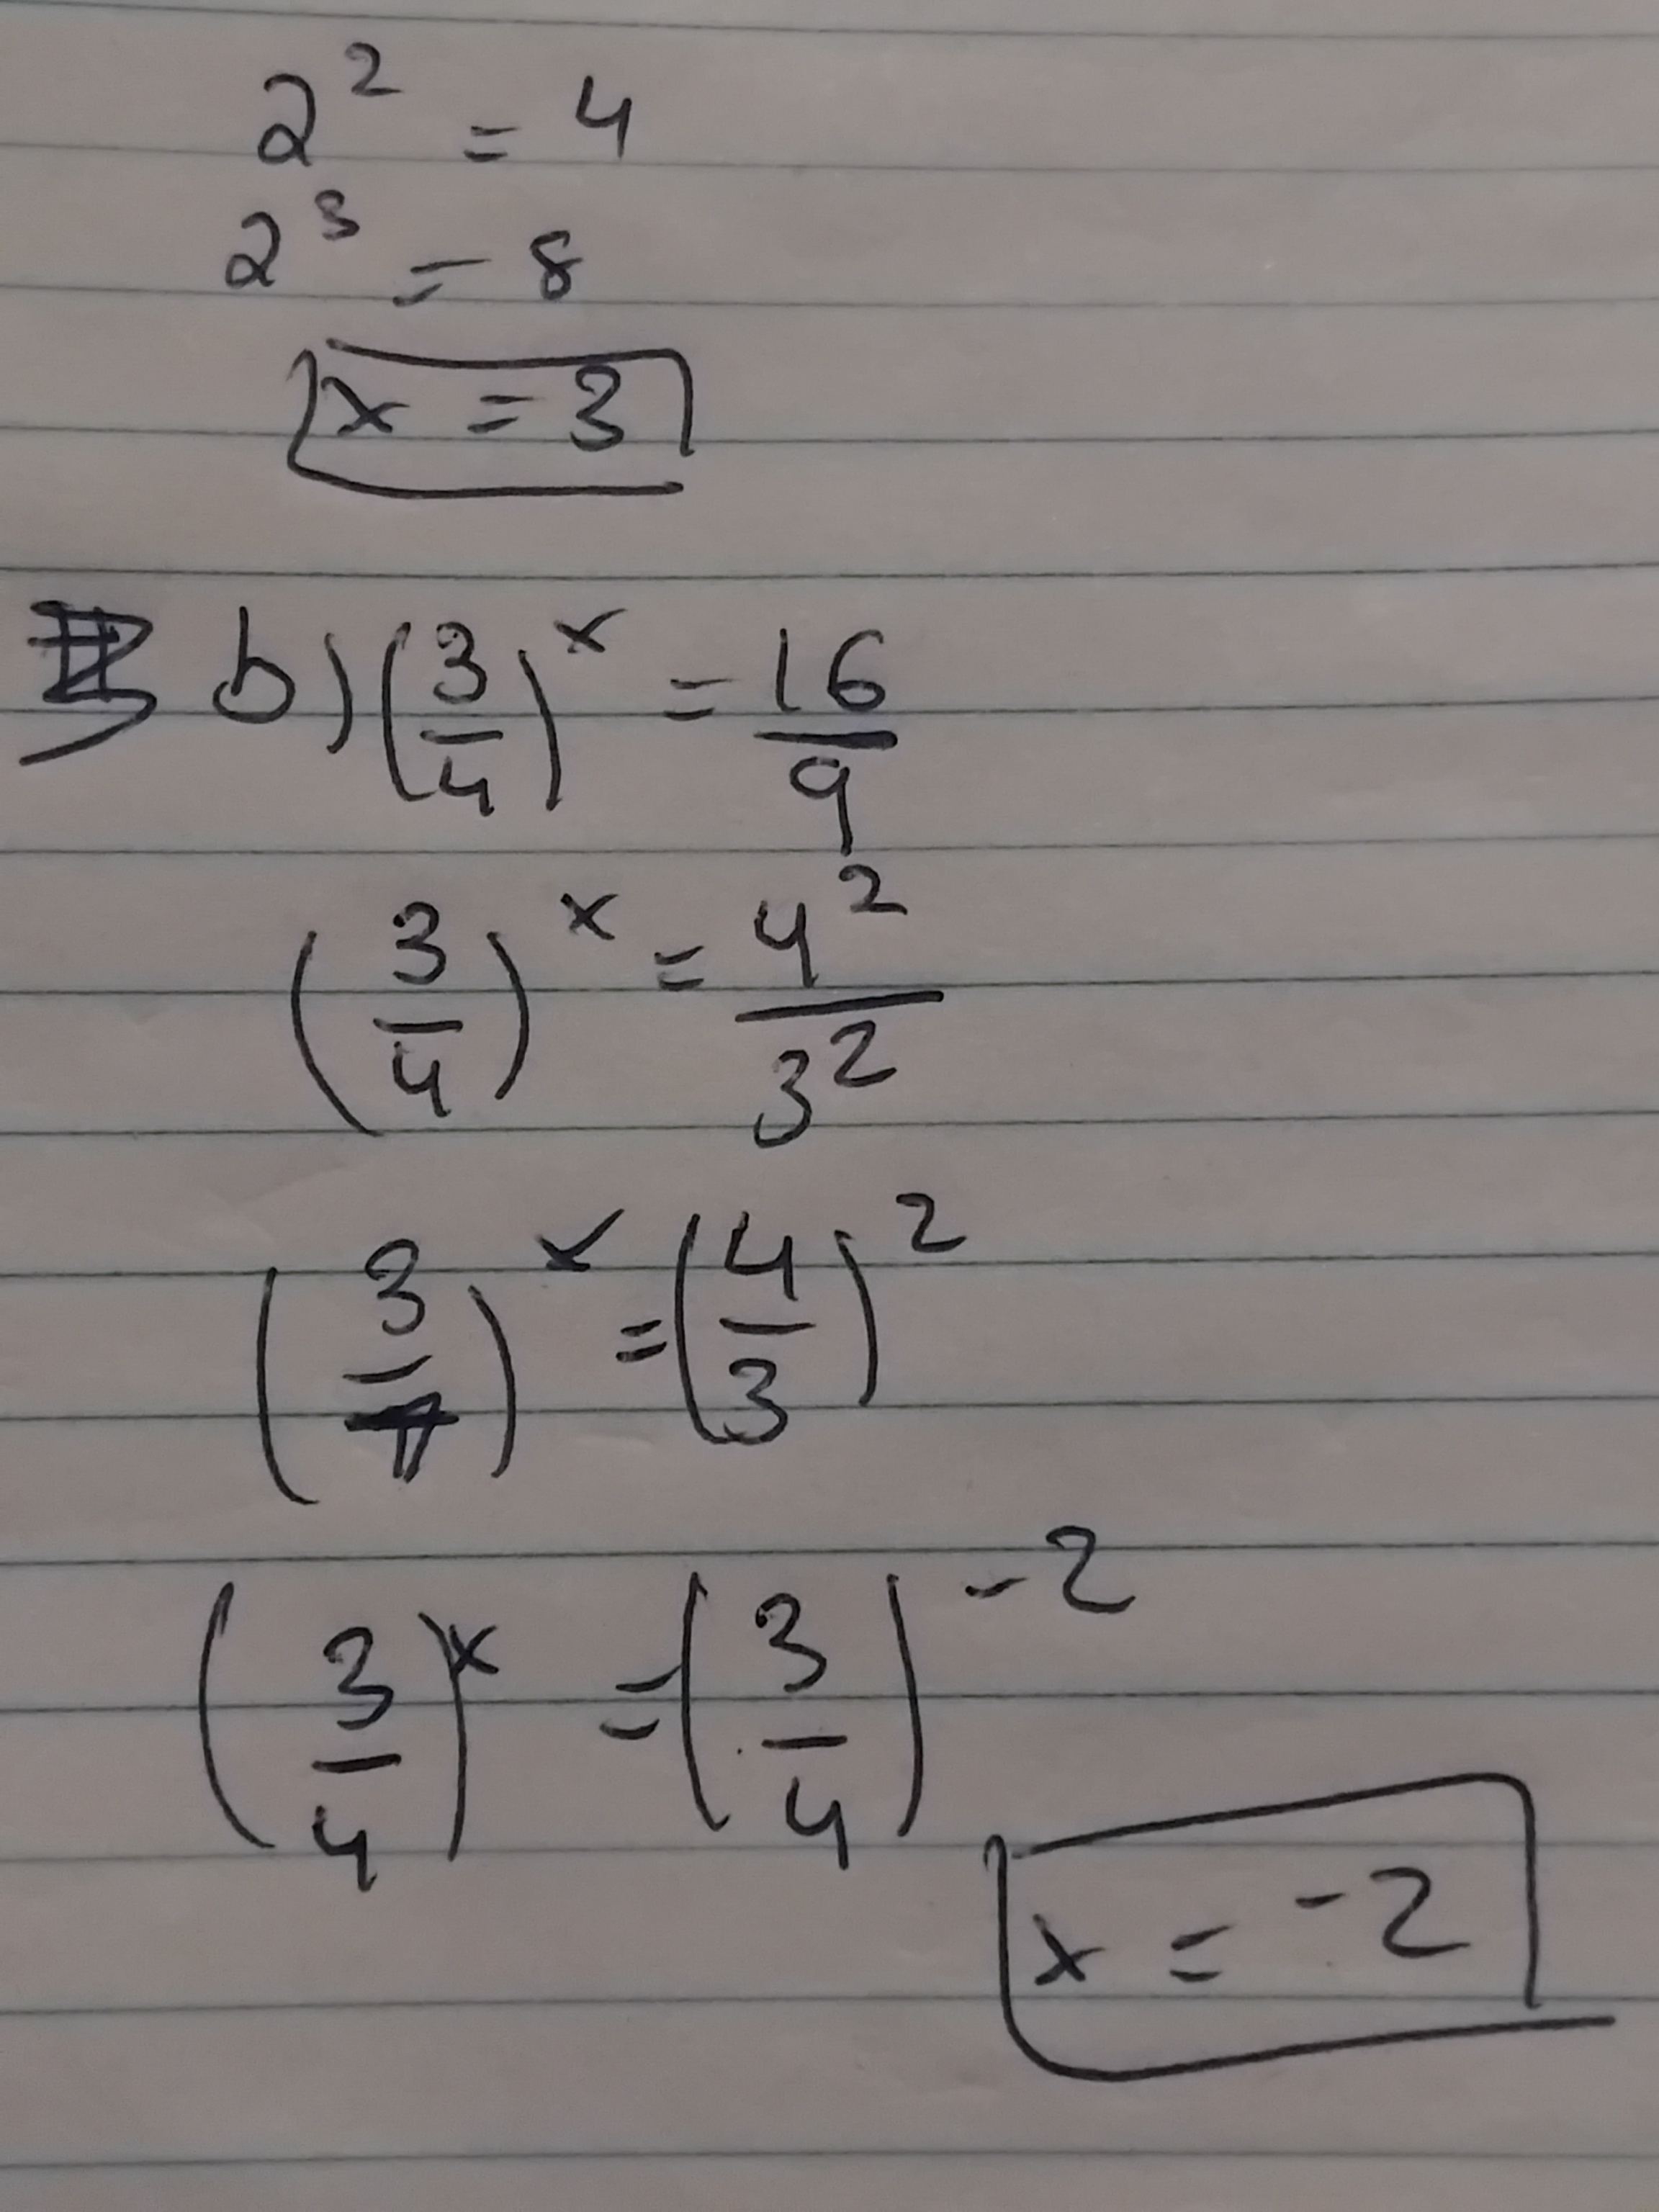 2² = 4
2³ = 8
x = 3
b) (3/4)ˣ = 16/9
(3/4)ˣ = 4²/3²
(3/4)ˣ = (4/3)²
(3/4)ˣ = (3/4)⁻²
x = -2